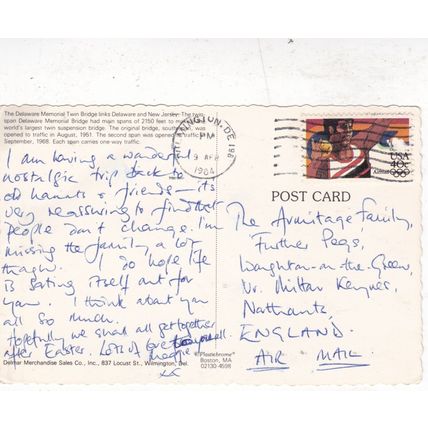 The Delaware Memorial Twin Bridge links Delaware and New Jersey. The twin
span Delaware Memorial Bridge had main spans of 2150 feet to
world's largest twin suspension bridge. The original bridge, was
opened to traffic in August, 1951. The second span was opened to traffic
September, 1968. Each span carries one-way traffic.
I am having a wonderful
nostalgic trip back to
old haunts & friends – its
very reassuring to find that
people don't change. I'm
missing the family a lot
though. I do hope life
is sorting itself out for
you. I think about you
all so much.
Hopefully we shall all get together
after Easter. Lots of love to you all.
Maggie
xx
Delmar Merchandise Sales Co., Inc., 837 Locust St., Wilmington, Del.
WILMINGTON, DE 198
PM
9 APR
1984
USA
40c
POST CARD
The Armitage Family,
Further Pegs,
Woughton-on-the-Green,
Nr. Milton Keynes,
Northants,
ENGLAND.
AIR MAIL
Plastichrome®
Boston, MA
02130 4598